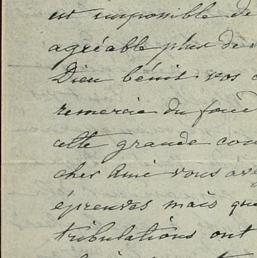 est impossible de
agréable plus de
Dieu bénit vos
remercie du fond
cette grande
cher Ami vous
épreuves mais
tribulations ont